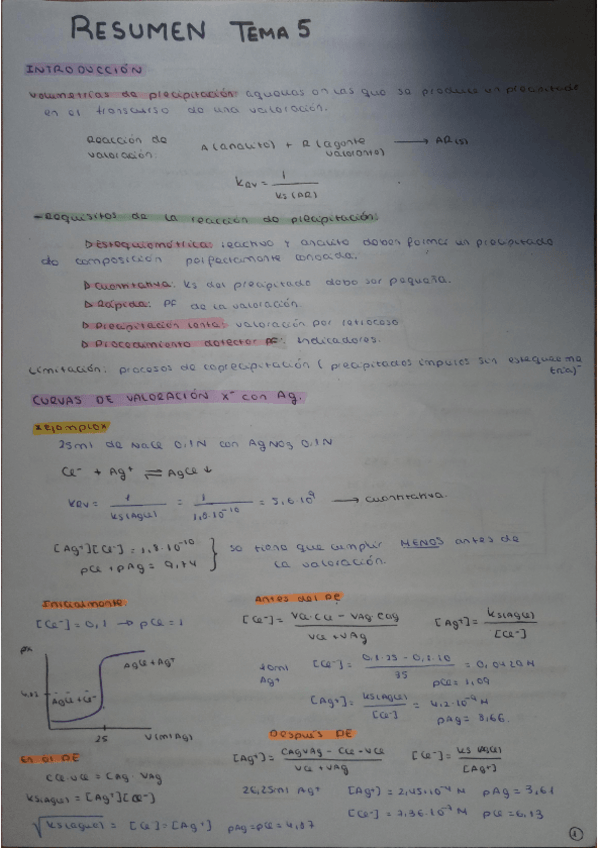 RESUMEN TEMA 5
INTRODUCCIÓN
Volumetrías de precipitación: aquellas en las que se produce un precipitado
en el transcurso de una valoración.
Reacción de valoración: A (analito) + R (agente valorante) ⟶ AR(s)
KRV = 1 / Ks(AR)
-Requisitos de la reacción de precipitación:
Estequiométrica: reactivo y analito deben formar un precipitado
de composición perfectamente conocida.
Cuantitativa: Ks del precipitado debe ser pequeña.
Rápida: PF de la valoración.
Precipitación lenta: valoración por retroceso
Procedimiento detector PF: Indicadores.
Limitación: procesos de coprecipitación (precipitados impuros sin estequiometría)
CURVAS DE VALORACIÓN X⁻ con Ag.
*Ejemplo*
25ml de NaCl 0,1N con AgNO3 0,1N
Cl⁻ + Ag⁺ ⇌ AgCl ↓
KRV = 1 / Ks(AgCl) = 1 / 1,8·10⁻¹⁰ = 5,6·10⁹ ⟶ cuantitativa.
[Ag⁺][Cl⁻] = 1,8·10⁻¹⁰
pCl + pAg = 9,74
} se tiene que cumplir MENOS antes de
la valoración.
Inicialmente:
[Cl⁻] = 0,1 → pCl = 1
Antes del PE
[Cl⁻] = VCl·CCl − VAg·CAg / VCl + VAg
[Ag⁺] = Ks(AgCl) / [Cl⁻]
10ml Ag⁺
[Cl⁻] = 0,1·25 − 0,1·10 / 35 = 0,0429 M
pCl = 1,09
[Ag⁺] = Ks(AgCl) / [Cl⁻] = 4,2·10⁻⁹ M
pAg = 8,66.
AgCl + Ag⁺
AgCl + Cl⁻
25
V(ml Ag)
En el PE
CCl·VCl = CAg·VAg
Ks(AgCl) = [Ag⁺][Cl⁻]
√Ks(AgCl) = [Cl⁻] = [Ag⁺] pAg = pCl = 4,87
Después PE
[Ag⁺] = CAgVAg − CCl·VCl / VCl + VAg
[Cl⁻] = Ks(AgCl) / [Ag⁺]
26,25ml Ag⁺ [Ag⁺] = 2,45·10⁻⁴ M pAg = 3,61
[Cl⁻] = 7,36·10⁻⁷ M pCl = 6,13
1